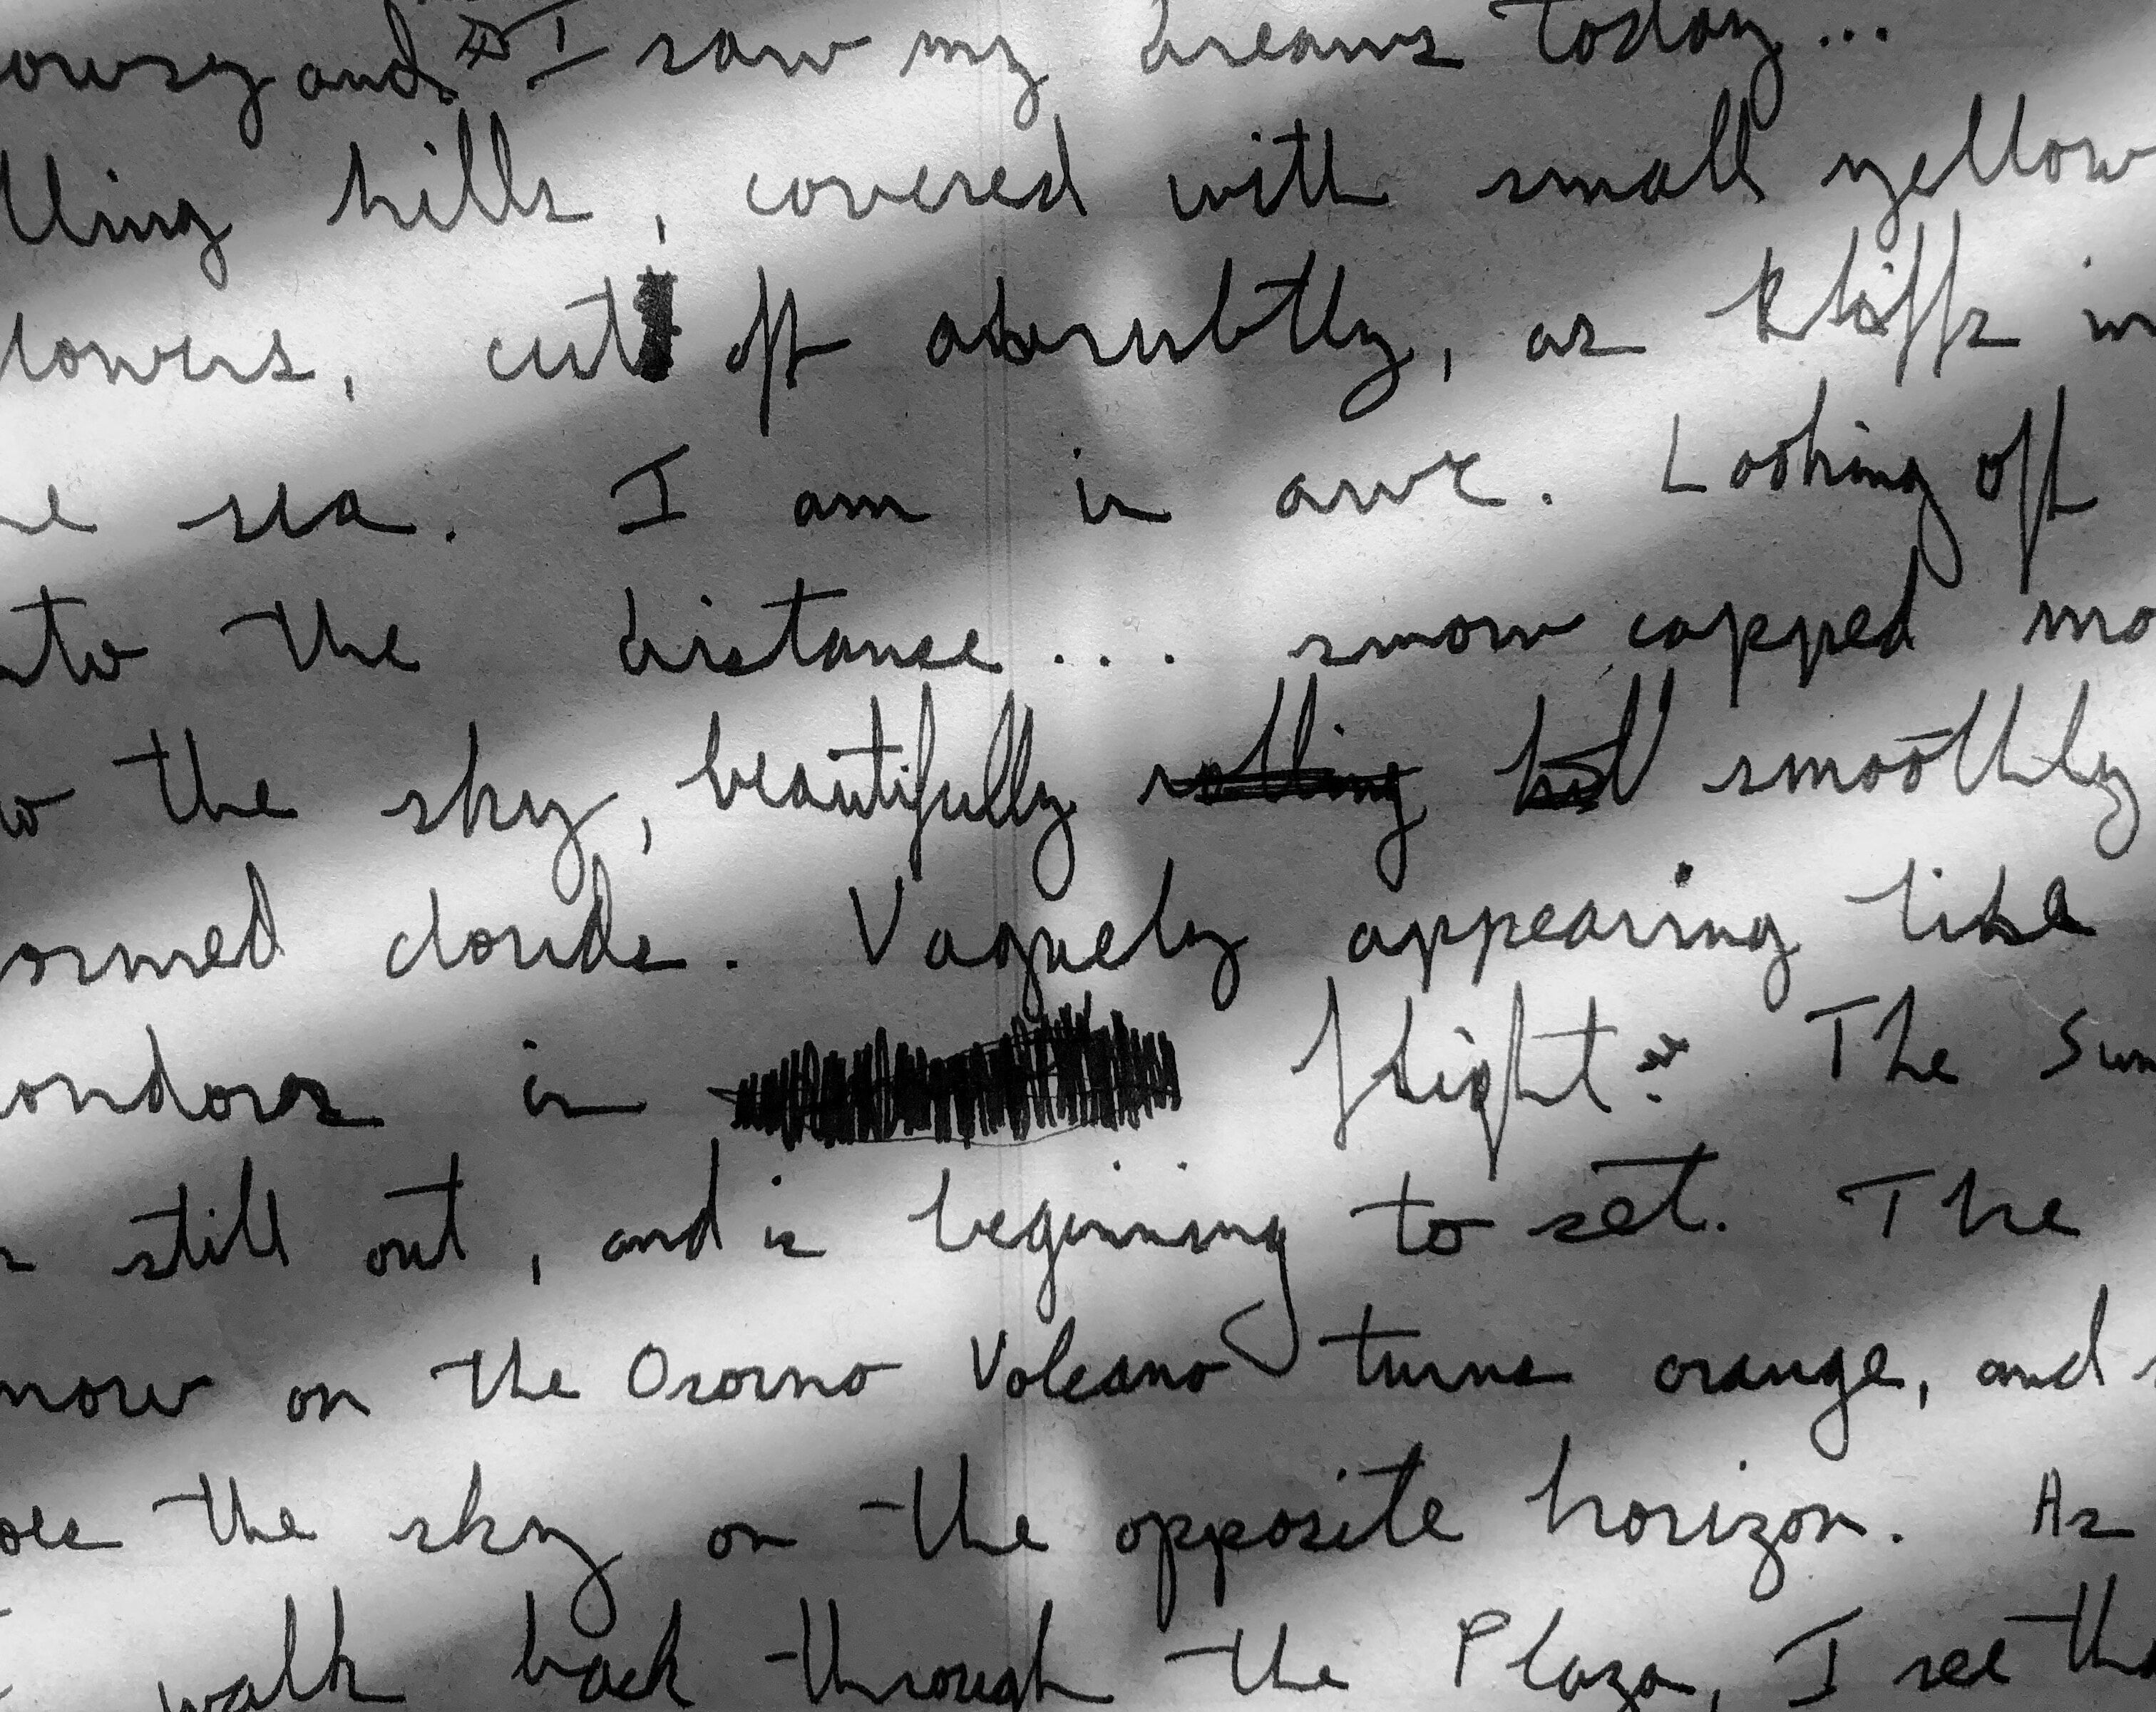 owsy and I saw my dreams today...
lling hills, covered with small yellow
lowers, cut off abrubtly, as kliffs in
e sea. I am in awe. Looking off
nto the distance... snow capped mo
w the sky, beautifully rolling hil smoothly
ormed clouds. Vaguely appearing like
ondores in flight. The Sun
s still out, and is beginning to set. The
now on the Osorno Volcano turns orange, and
oes the sky on the opposite horizon. As
walk back through the Plaza, I see tha